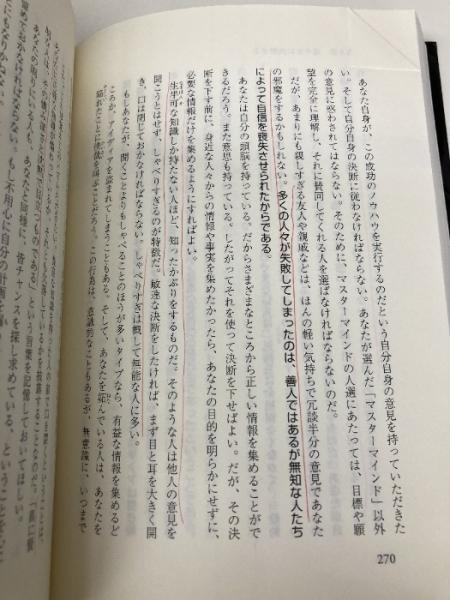 あなた自身が、この成功のノウハウを実行するのだという自分自身の意見を持っていただきた
い。そして自分自身の決断に従わなければならない。あなたが選んだ「マスターマインド」以外
の意見に惑わされてはならない。そのために、マスターマインドの人選にあたっては、目標や願
望を完全に理解し、それに賛同してくれる人を選ばなければならないのだ。
だが、あまりにも親しすぎる友人や親戚などは、ほんの軽い気持ちで冗談半分の意見であなた
の邪魔をするかもしれない。多くの人々が失敗してしまったのは、善人ではあるが無知な人たち
によって自信を喪失させられたからである。
あなたは自分の頭脳を持っている。だからさまざまなところから正しい情報を集めることがで
きるだろう。また意思も持っている。したがってそれを使って決断を下せばよい。だが、その決
断を下す前に、身近な人々からの情報や事実を集めたかったら、あなたの目的を明らかにせずに、
必要な情報だけを集めるようにすればよい。
生半可な知識しか持たない人ほど、知ったかぶりをするものだ。そのような人は他人の意見を
聞こうとはせず、しゃべりすぎるのが特徴だ。敏速な決断をしたければ、まず目と耳を大きく開
き、口は閉じておかなければならない。しゃべりすぎは概して無能な人に多い。
もしあなたが、聞くことよりもしゃべることのほうが多いタイプなら、有益な情報を集めるど
ころか、アイディアを盗まれてしまうこともある。そして、あなたを妬んでいる人は、あなたを
この行為は、意識的なこともあるが、無意識に、いつまで
という言葉を記憶しておいてほしい。
あなたと同様に、皆チャンスを探し求めている、ということを
不用心に自分の計画を
270